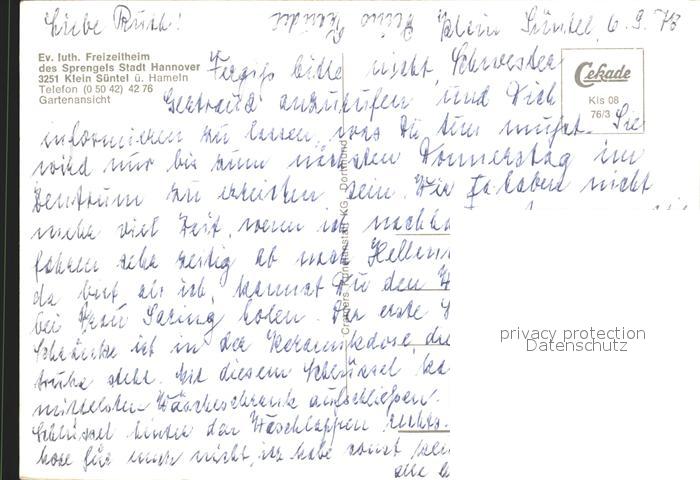 Liebe Ruth! Klein Süntel, 6. 9. 76
Ev. luth. Freizeitheim
des Sprengels Stadt Hannover
3251 Klein Süntel ü. Hameln
Telefon (0 50 42) 42 76
Gartenansicht
Cekade
Kls 08
76/3
Vergiß bitte nicht, Schwester
Gertraud anzurufen und Dich
informieren zu lassen, was Du tun mußt. Sie
wird nur bis zum nächsten Donnerstag im
Zentrum zu erreichen sein. Wir haben nicht
mehr viel Zeit, wenn ich
fahren sehr zeitig ab nach
da bist als ich, kannst Du den
bei Frau Saring holen. Der erste
Schränke ist in der Keramikdose, die
truhe steht. Mit diesem Schlüssel
mittelsten Wäscheschrank aufschließen.
Schlüssel hinter den Waschlappen rechts.
hose für mich nicht, ich habe sonst
alle
Cramers Kunstanstalt KG, Dortmund
privacy protection
Datenschutz